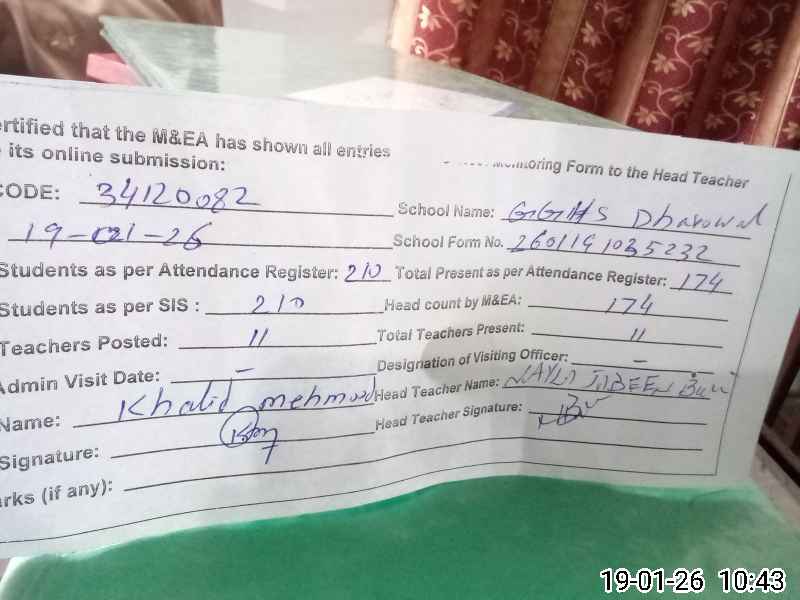 ertified that the M&EA has shown all entries
oring Form to the Head Teacher
its online submission:
CODE: 34120082
School Name: GGHS Dharowal
19-01-26
School Form No. 2601191035232
Students as per Attendance Register: 210 Total Present as per Attendance Register: 174
Students as per SIS : 210 Head count by M&EA: 174
Teachers Posted: 11 Total Teachers Present: 11
Admin Visit Date: - Designation of Visiting Officer: -
Name: Khalid mehmood Head Teacher Name: NAYLA JABEEN
Signature: Head Teacher Signature:
arks (if any):
19-01-26 10:43